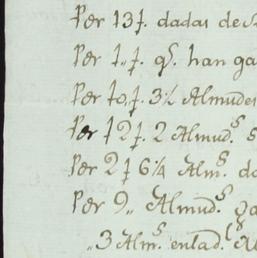 Per 13 f. dadas de
Per 1,, f. qe. han
Per 10, f. 3½ Almudes
Per 12 f. 2 Almud.s
Per 2 f 6¼ Alm.s
Per 9,, Almud.s
,,3 Alm.s entlad.